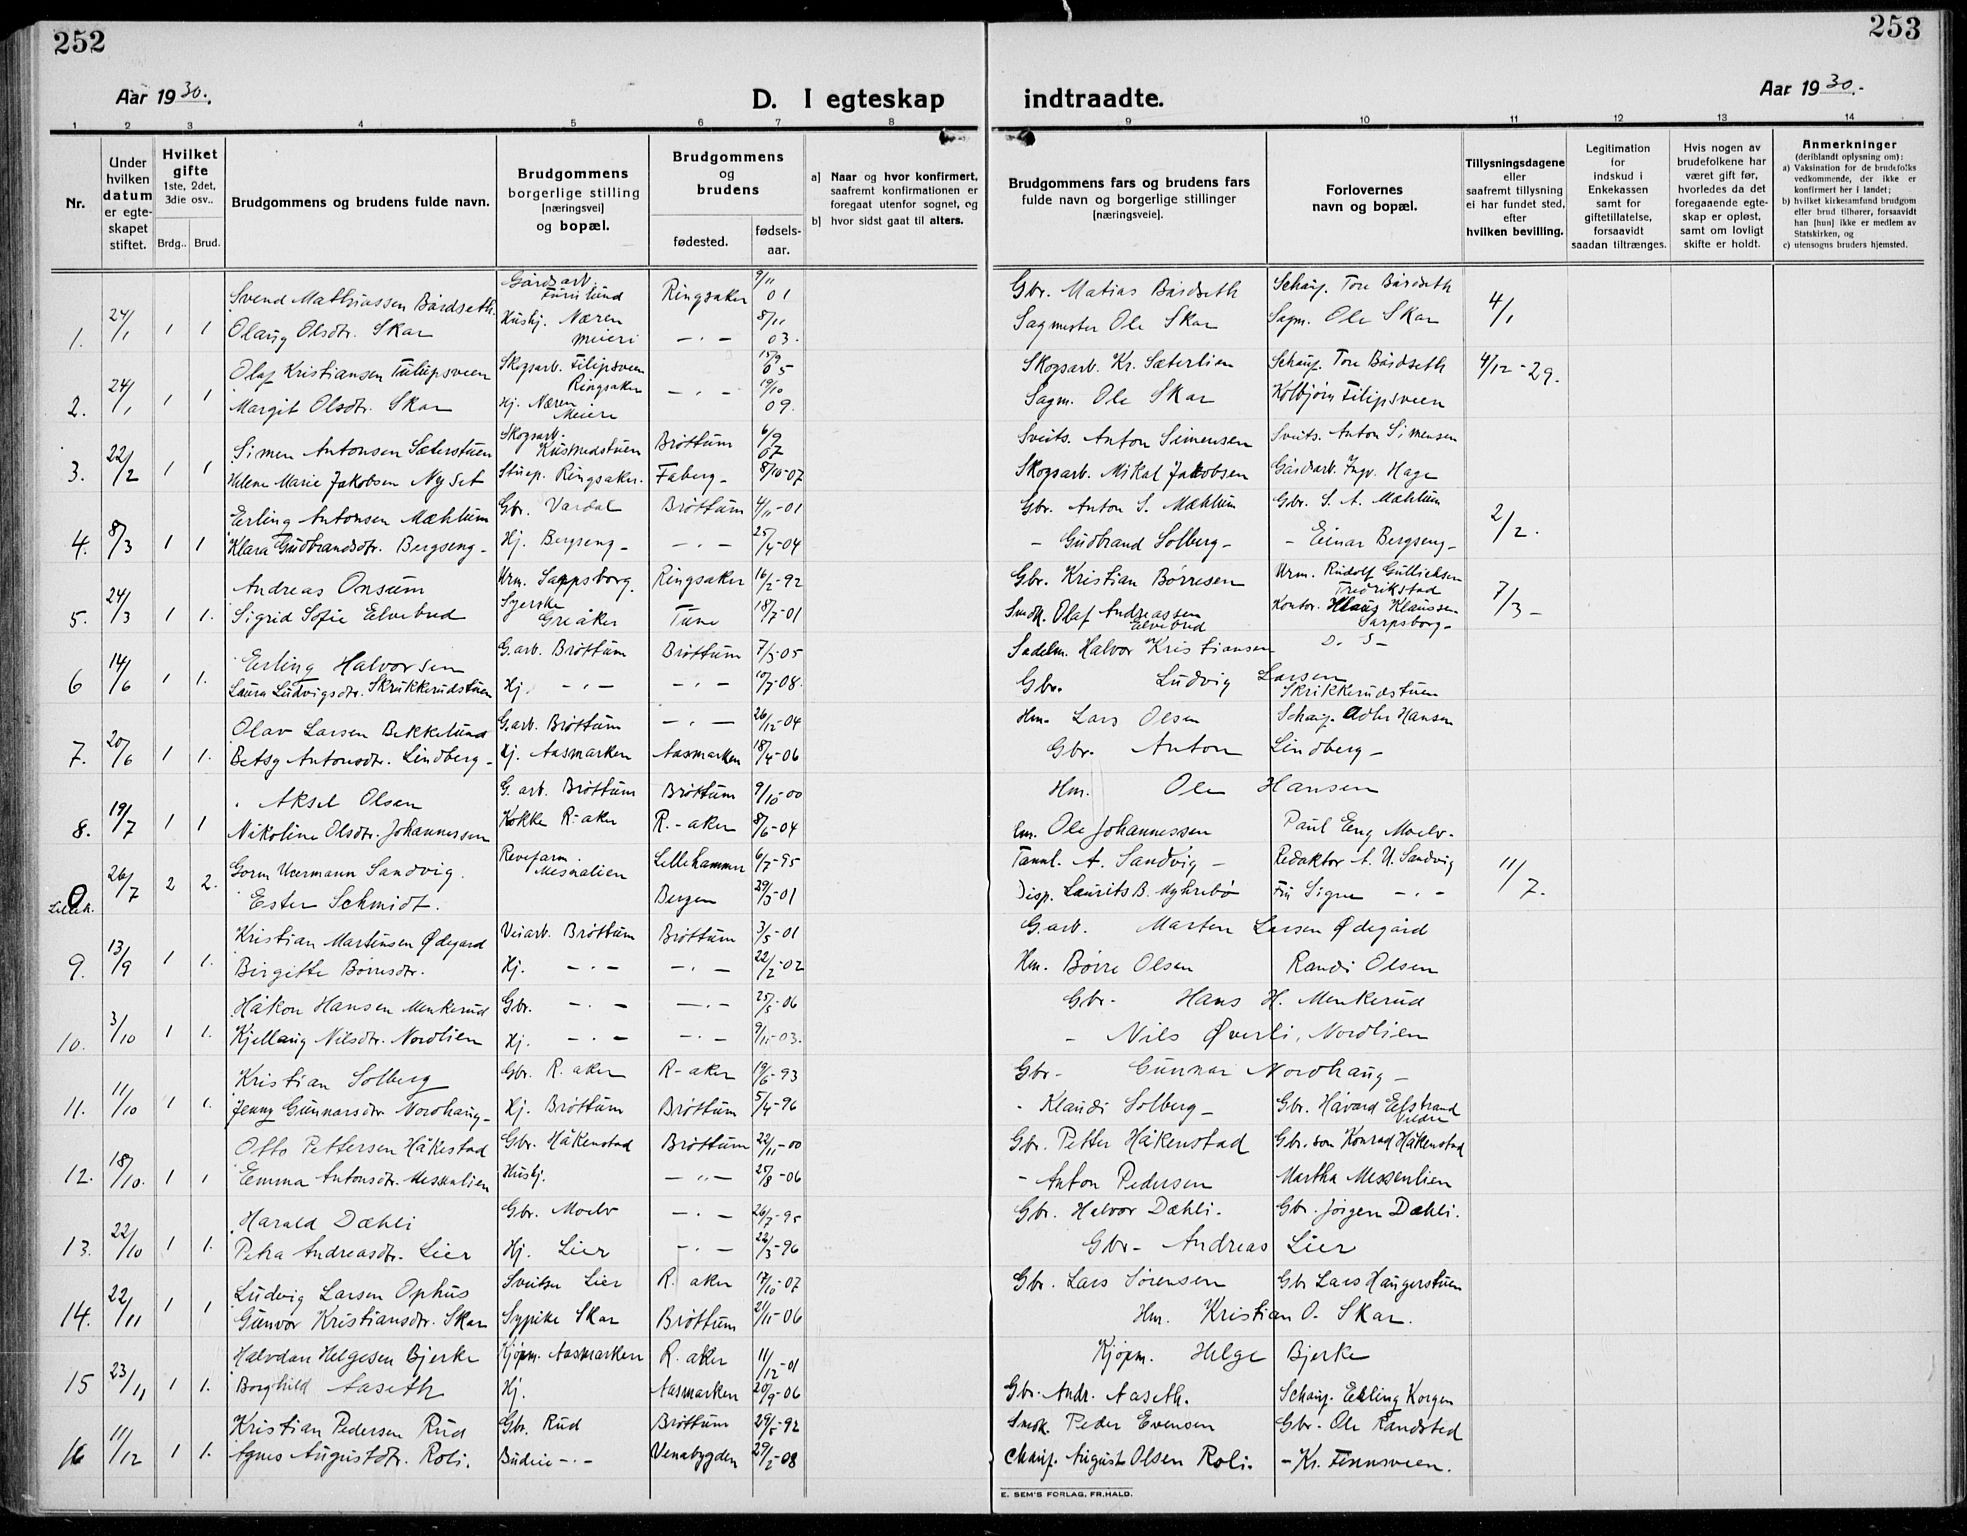 252
253
Aar 1930.
D. I egteskap
indtraadte.
Aar 1930.-
1 2 3 4 5 6 7 8 9 10 11 12 13 14
Nr.
Under hvilken datum er egteskapet stiftet.
Hvilket gifte 1ste, 2det, 3die osv..
Brdg.. Brud.
Brudgommens og brudens fulde navn.
Brudgommens borgerlige stilling [næringsvei] og bopæl.
Brudgommens og brudens
fødested. fødselsaar.
a] Naar og hvor konfirmert, saafremt konfirmationen er foregaat utenfor sognet, og
b] hvor sidst gaat til alters.
Brudgommens fars og brudens fars fulde navn og borgerlige stillinger [næringsveie].
Forlovernes navn og bopæl.
Tillysningsdagene eller saafremt tillysning ei har fundet sted, efter hvilken bevilling.
Legitimation for indskud i Enkekassen samt for giftetillatelse, forsaavidt saadan tiltrænges.
Hvis nogen av brudefolkene har været gift før, hvorledes da det foregaaende egteskap er opløst, samt om lovligt skifte er holdt.
Anmerkninger (deriblandt oplysning om):
a) Vaksination for de brudefolks vedkommende, der ikke er konfirmert her i landet;
b) hvilket kirkesamfund brudgom eller brud tilhører, forsaavidt han [hun] ikke er medlem av Statskirken, og
c) utensogns bruders hjemsted.
1. 24/1 1 1 Svend Mathiassen Bårdseth. Gårdsarb. Furulund Ringsaker 9/11 01 Gbr. Matias Bårdseth Schauf. Tore Bårdseth 4/1
Olaug Olsdtr. Skar Hushj. Næren meieri -"- 8/11 03. Sagmester Ole Skar Sagm. Ole Skar
2. 24/1 1 1 Olaf Kristiansen Filipsveen Skogsarb. Filipsveen Ringsaker -"- 15/9 05 Skogsarb. Kr. Sæterlien Schauf. Tore Bårdseth 4/12-29.
Margit Olsdtr. Skar Hj. Næren Meieri 19/10 09. Sagm. Ole Skar Kolbjørn Filipsveen
3. 22/2 1 1 Simen Antonsen Sæterstuen Skogsarb. Brøttum 6/9 07 Sveits. Anton Simensen Sveits. Anton Simensen
Helene Marie Jakobsen Nyset Stuep. Ringsaker. Faberg- 8/10-07 Skogsarb. Mikal Jakobsen Gårdarb. Ingv. Hage
4. 8/3 1 1 Erling Antonsen Mæhlum Gbr. Vardal Brøttum 4/11-01 Gbr. Anton S. Mæhlum Gbr. S. A. Mæhlum 2/2.
Klara Gudbrandsdtr. Bergseng- Hj. Bergseng- -"- 25/4-04 - Gudbrand Solberg- - Einar Bergseng-
5. 24/3 1 1. Andreas Onsum Urm. Sappsborg. Ringsaker 16/2-92 Gbr. Kristian Børresen Urm. Rudolf Gullichsen Fredrikstad 7/3-
Sigrid Sofie Elvebred Syerske Greåker Tune 18/7-01 Smdk. Olaf Andreassen Elvebred Kontor. Klaus Klaussen Sarpsborg-
6 14/6 1 1. Erling Halvorsen G.arb. Brøttum Brøttum 7/3-05 Sadelm. Halvor Kristiansen D. S-
Laura Ludvigsdtr. Skrukkerudstuen Hj. -"- -"- 10/7-08. Gbr. Ludvig Larsen Skrikkerudstuen
7. 20/6 1 1. Olav Larsen Bekkelund G.arb. Brøttum -"- 26/12-04 Hm. Lars Olsen Schauf. Adler Hansen
Betsy Antonsdtr. Lindberg- Hj. Aasmarken Aasmarken 18/4-06 Gbr. Anton Lindberg-
8. 19/7 1 1 Aksel Olsen G. arb. Brøttum Brøttum 9/10-00 Hm. Ole Hansen
Nikoline Olsdtr. Johannessen Kokke R-aker R.-aker 8/6-04 Em. Ole Johannessen Paul Eng Moelv-
0 Lilleh. 26/7 2 2. Gorm Wermann Sandvig. Revefarm. Mesnalien Lillehammer 6/7-95 Tannl. A. Sandvig- Redaktør A. U. Sandvig 11/7.
Ester Schmidt. Bergen 29/3-01 Disp. Laurits B. Myhrebø Fru Signe -"-
9. 13/9 1 1. Kristian Martinsen Ødegard Veiarb. Brøttum Brøttum 3/5-01 G.arb. Marten Larsen Ødegård
Birgitte Børresdtr. Hj. -"- -"- 22/2-02 Hm. Børre Olsen Randi Olsen
10. 3/10 1 1. Håkon Hansen Menkerud Gbr. -"- -"- 25/5-06 Gbr- Hans H. Menkerud
Kjellaug Nilsdtr. Nordlien Hj. -"- -"- 9/11-03. - Nils Øverli, Nordlien
11. 11/10 1 1. Kristian Solberg Gbr. R. aker R-aker 19/6-93 Gbr- Gunnar Nordhaug-
Jenny Gunnarsdtr Nordhaug- Hj. Brøttum Brøttum 5/4-96 - Klaudi Solberg- Gbr. Håvard Elstrand Veldre
12. 18/10. 1 1 Otto Pettersen Håkestad Gbr. Håkenstad Brøttum 22/11-00 Gbr. Petter Håkenstad Gbr.søn Konrad Håkenstad
Emma Antonsdtr. Messenlien Hushj. -"- 25/8-06 - Anton Pedersen Martha Messenlien
13. 22/10 1 1. Harald Dæhli Gbr. Moelv -"- 26/7-95 Gbr. Halvor Dæhli. Gbr. Jørgen Dæhli.
Petra Andreasdtr. Lier Hj. Lier -"- 22/3-96 Gbr- Andreas Lier
14. 22/11 1 1 Ludvig Larsen Ophus Sveitser Lier R. aker 17/10-07 Gbr. Lars Sørensen Gbr Lars Haugerstuen
Gunvor Kristiansdtr. Skar Sypike Skar Brøttum 21/11-06 Hm. Kristian O. Skar.
15 23/11 1 1. Halvdan Helgesen Bjerke Kjøpm. Aasmarken R. aker 11/12-01 Kjøpm. Helge Bjerke
Borghild Aaseth Hj. Aasmarken 20/9-06 Gbr. Andr. Aaseth. Schauf. Erling Korgen
16 11/12 1 1. Kristian Pedersen Rud Gbr. Rud Brøttum 29/5-92 Smdk. Peder Evensen Gbr- Ole Randsted
Agnes Augustdtr. Roli. Budeie -"- Venabygden 29/2-08 Chauf. August Olsen Roli. - Kr. Finnsveen.
E. SEM'S FORLAG, FR.HALD.